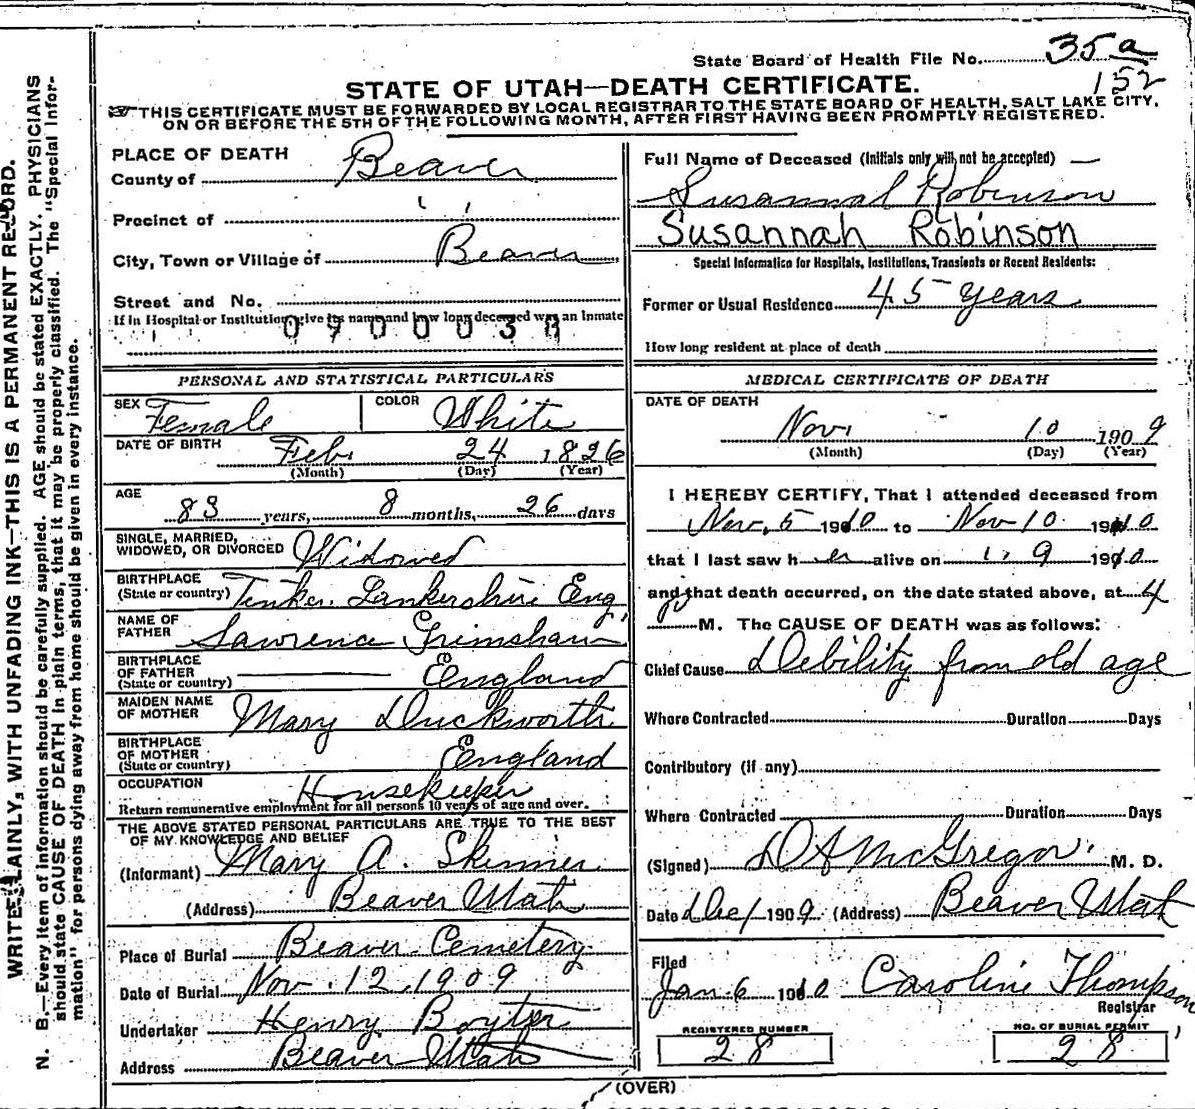 State Board of Health File No. 35a
152
STATE OF UTAH—DEATH CERTIFICATE.
THIS CERTIFICATE MUST BE FORWARDED BY LOCAL REGISTRAR TO THE STATE BOARD OF HEALTH, SALT LAKE CITY,
ON OR BEFORE THE 5TH OF THE FOLLOWING MONTH, AFTER FIRST HAVING BEEN PROMPTLY REGISTERED.
WRITE PLAINLY, WITH UNFADING INK—THIS IS A PERMANENT RECORD.
N. B.—Every item of information should be carefully supplied. AGE should be stated EXACTLY. PHYSICIANS
should state CAUSE OF DEATH in plain terms, that it may be properly classified. The "Special Infor-
mation" for persons dying away from home should be given in every instance.
PLACE OF DEATH
County of Beaver
Precinct of " "
City, Town or Village of Beaver
Street and No.
If in Hospital or Institution, give its name and how long deceased was an Inmate
Full Name of Deceased (Initials only will not be accepted)
Susannah Robinson
Susannah Robinson
Special Information for Hospitals, Institutions, Transients or Recent Residents:
Former or Usual Residence 45 years
How long resident at place of death
PERSONAL AND STATISTICAL PARTICULARS
SEX Female COLOR White
DATE OF BIRTH Feb. 24 1826
(Month) (Day) (Year)
AGE
83 years, 8 months, 26 days
SINGLE, MARRIED,
WIDOWED, OR DIVORCED Widowed
BIRTHPLACE
(State or country) Lankershire Eng.
NAME OF
FATHER Lawrence Grimshaw
BIRTHPLACE
OF FATHER
(State or country) England
MAIDEN NAME
OF MOTHER Mary Duckworth
BIRTHPLACE
OF MOTHER
(State or country) England
OCCUPATION Housekeeper
Return remunerative employment for all persons 10 years of age and over.
THE ABOVE STATED PERSONAL PARTICULARS ARE TRUE TO THE BEST
OF MY KNOWLEDGE AND BELIEF
(Informant) Mary A. Skinner
(Address) Beaver Utah
Place of Burial Beaver Cemetery
Date of Burial Nov. 12, 1909
Undertaker Henry Boyter
Address Beaver Utah
MEDICAL CERTIFICATE OF DEATH
DATE OF DEATH
Nov. 10 1909
(Month) (Day) (Year)
I HEREBY CERTIFY, That I attended deceased from
Nov. 5 1910 to Nov 10 1910
that I last saw her alive on 9 1910
and that death occurred, on the date stated above, at 4
M. The CAUSE OF DEATH was as follows:
Chief Cause Debility from old age
Where Contracted Duration Days
Contributory (if any)
Where Contracted Duration Days
(Signed) McGregor M. D.
Date Dec 1 1909 (Address) Beaver Utah
Filed
Jan. 6 1910 Caroline Thompson
Registrar
REGISTERED NUMBER NO. OF BURIAL PERMIT
28 28
(OVER)